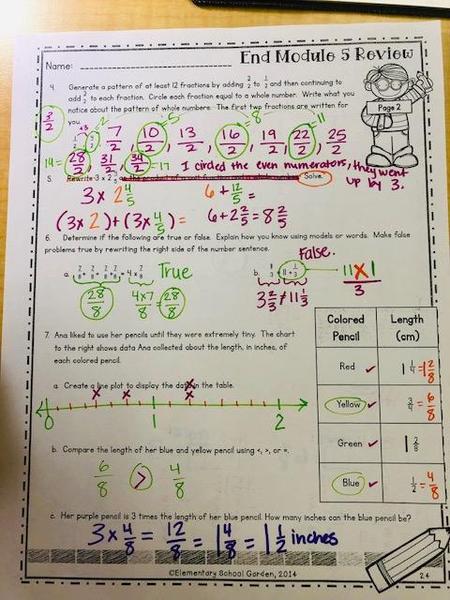 End Module 5 Review
Name:
Page 2
4. Generate a pattern of at least 12 fractions by adding 3/2 to 1/2 and then continuing to
add 3/2 to each fraction. Circle each fraction equal to a whole number. Write what you
notice about the pattern of whole numbers. The first two fractions are written for
you.
3/2 +3 =2 7/2, 10/2 =5, 13/2, 16/2 =8, 19/2, 22/2 =11, 25/2
14= 28/2, 31/2, 34/2 =17 I circled the even numerators, they went
up by 3.
5. Rewrite 3 x 2 4/5 Solve.
3 x 2 4/5 6 + 12/5 =
(3 x 2) + (3 x 4/5) = 6 + 2 2/5 = 8 2/5
6. Determine if the following are true or false. Explain how you know using models or words. Make false
problems true by rewriting the right side of the number sentence.
False.
a. 7/8 + 7/8 + 7/8 + 7/8 = 4 x 7/8 True b. 11/3 = 11 + 1/3 11 x 1/3
28/8 4x7/8 = 28/8 3 2/3 ≠ 11 1/3
7. Ana liked to use her pencils until they were extremely tiny. The chart
to the right shows data Ana collected about the length, in inches, of
each colored pencil.
Colored Pencil Length (cm)
Red 1 1/4 = 1 2/8
Yellow 3/4 = 6/8
Green 1 2/8
Blue 1/2 = 4/8
a. Create a line plot to display the data in the table.
x x x x
0 1 2
b. Compare the length of her blue and yellow pencil using <, >, or =.
6/8 > 4/8
c. Her purple pencil is 3 times the length of her blue pencil. How many inches can the blue pencil be?
3 x 4/8 = 12/8 = 1 4/8 = 1 1/2 inches
©Elementary School Garden, 2014
24